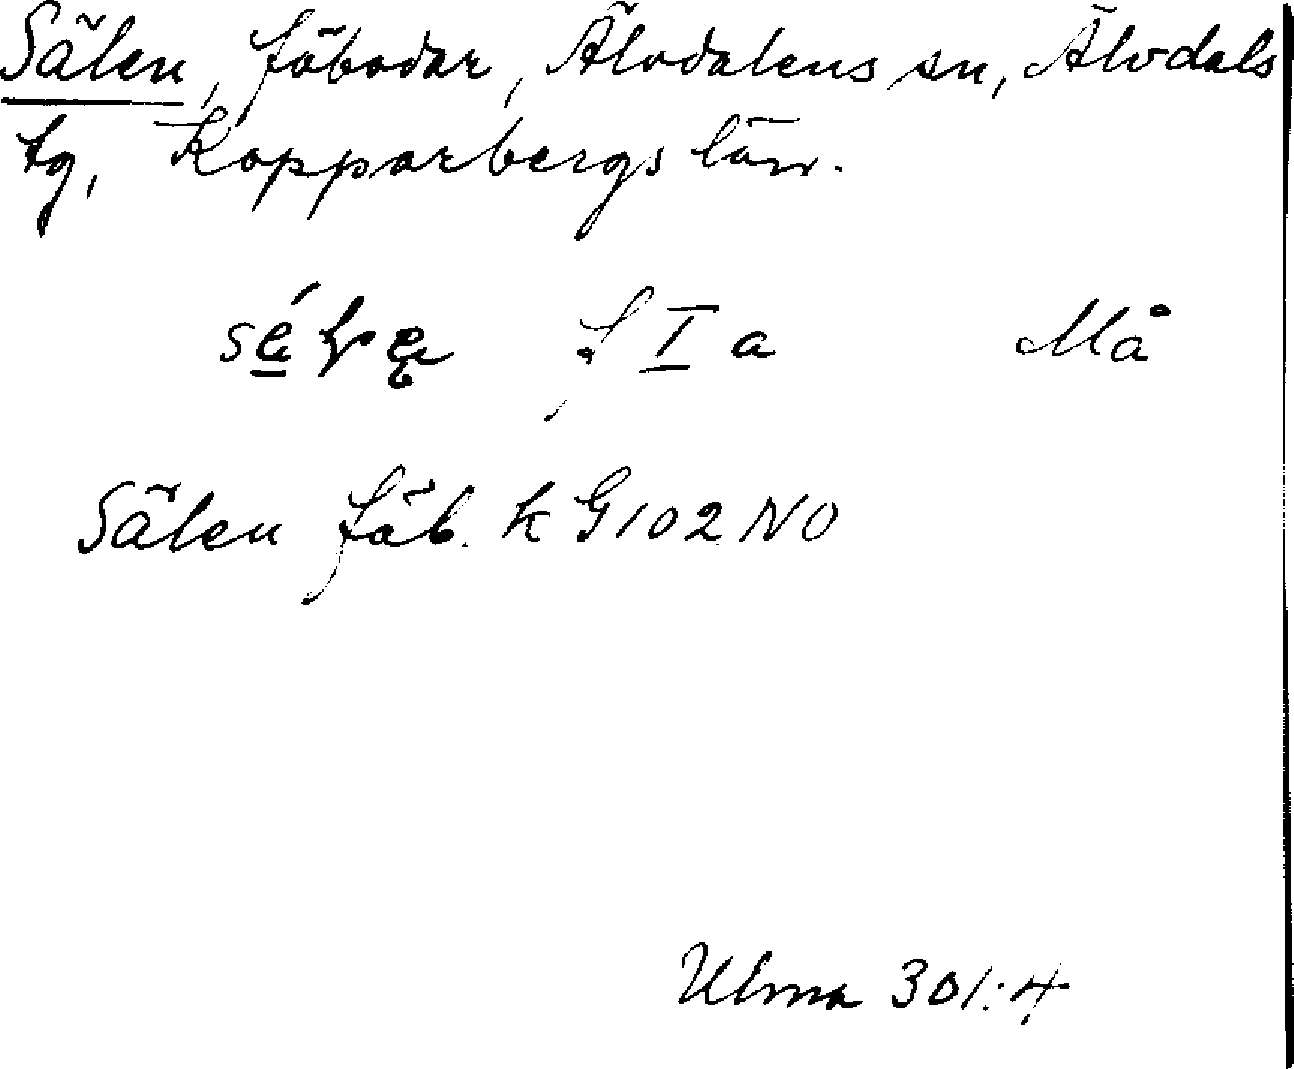 Sälen, fäbodar, Älvdalens sn, Älvdals
tg, Kopparbergs län.
f I a Må
Sälen fäb. k G102NO
Ulma 301:4